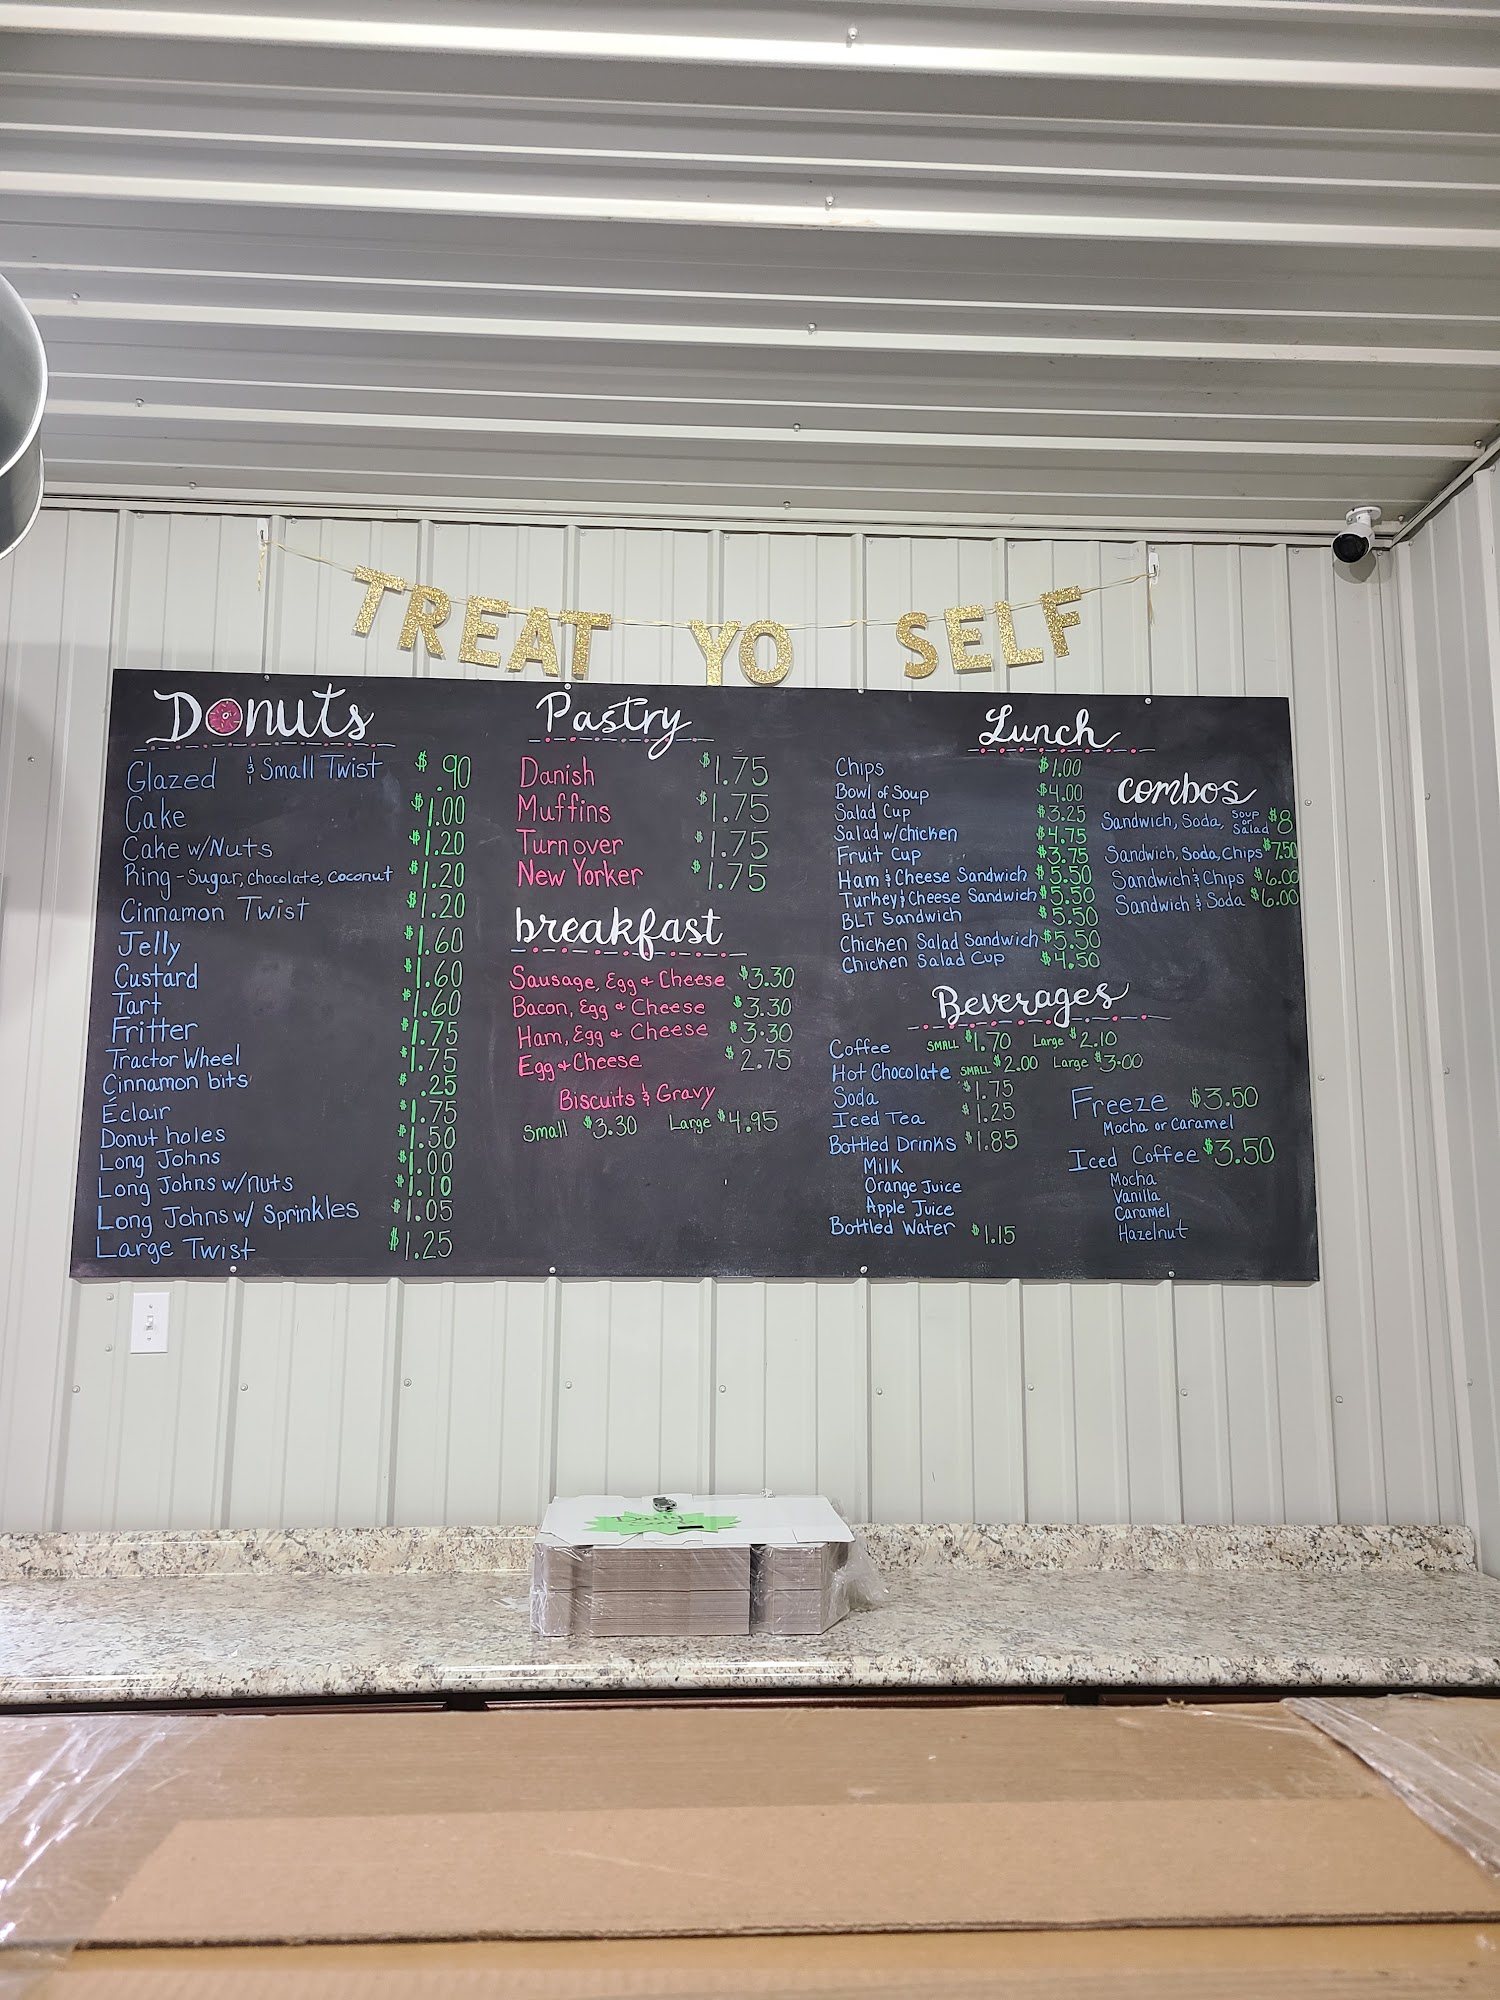 TREAT YO SELF
Donuts
Glazed & Small Twist $ .90
Cake $1.00
Cake w/Nuts $1.20
Ring - Sugar, Chocolate, Coconut $1.20
Cinnamon Twist $1.20
Jelly $1.60
Custard $1.60
Tart $1.60
Fritter $1.75
Tractor Wheel $1.75
Cinnamon bits $ .25
Éclair $1.75
Donut holes $1.50
Long Johns $1.00
Long Johns w/nuts $1.10
Long Johns w/ Sprinkles $1.05
Large Twist $1.25
Pastry
Danish $1.75
Muffins $1.75
Turnover $1.75
New Yorker $1.75
breakfast
Sausage, Egg + Cheese $3.30
Bacon, Egg + Cheese $3.30
Ham, Egg + Cheese $3.30
Egg + Cheese $2.75
Biscuits & Gravy
Small $3.30 Large $4.95
Lunch
Chips $1.00
Bowl of Soup $4.00
Salad Cup $3.25
Salad w/chicken $4.75
Fruit Cup $3.75
Ham & Cheese Sandwich $5.50
Turkey & Cheese Sandwich $5.50
BLT Sandwich $5.50
Chicken Salad Sandwich $5.50
Chicken Salad Cup $4.50
combos
Sandwich, Soda, Soup or Salad $8
Sandwich, Soda, Chips $7.50
Sandwich & Chips $6.00
Sandwich & Soda $6.00
Beverages
Coffee SMALL $1.70 Large $2.10
Hot Chocolate SMALL $2.00 Large $3.00
Soda $1.75
Iced Tea $1.25
Bottled Drinks $1.85
Milk
Orange Juice
Apple Juice
Bottled Water $1.15
Freeze $3.50
Mocha or Caramel
Iced Coffee $3.50
Mocha
Vanilla
Caramel
Hazelnut
Daily